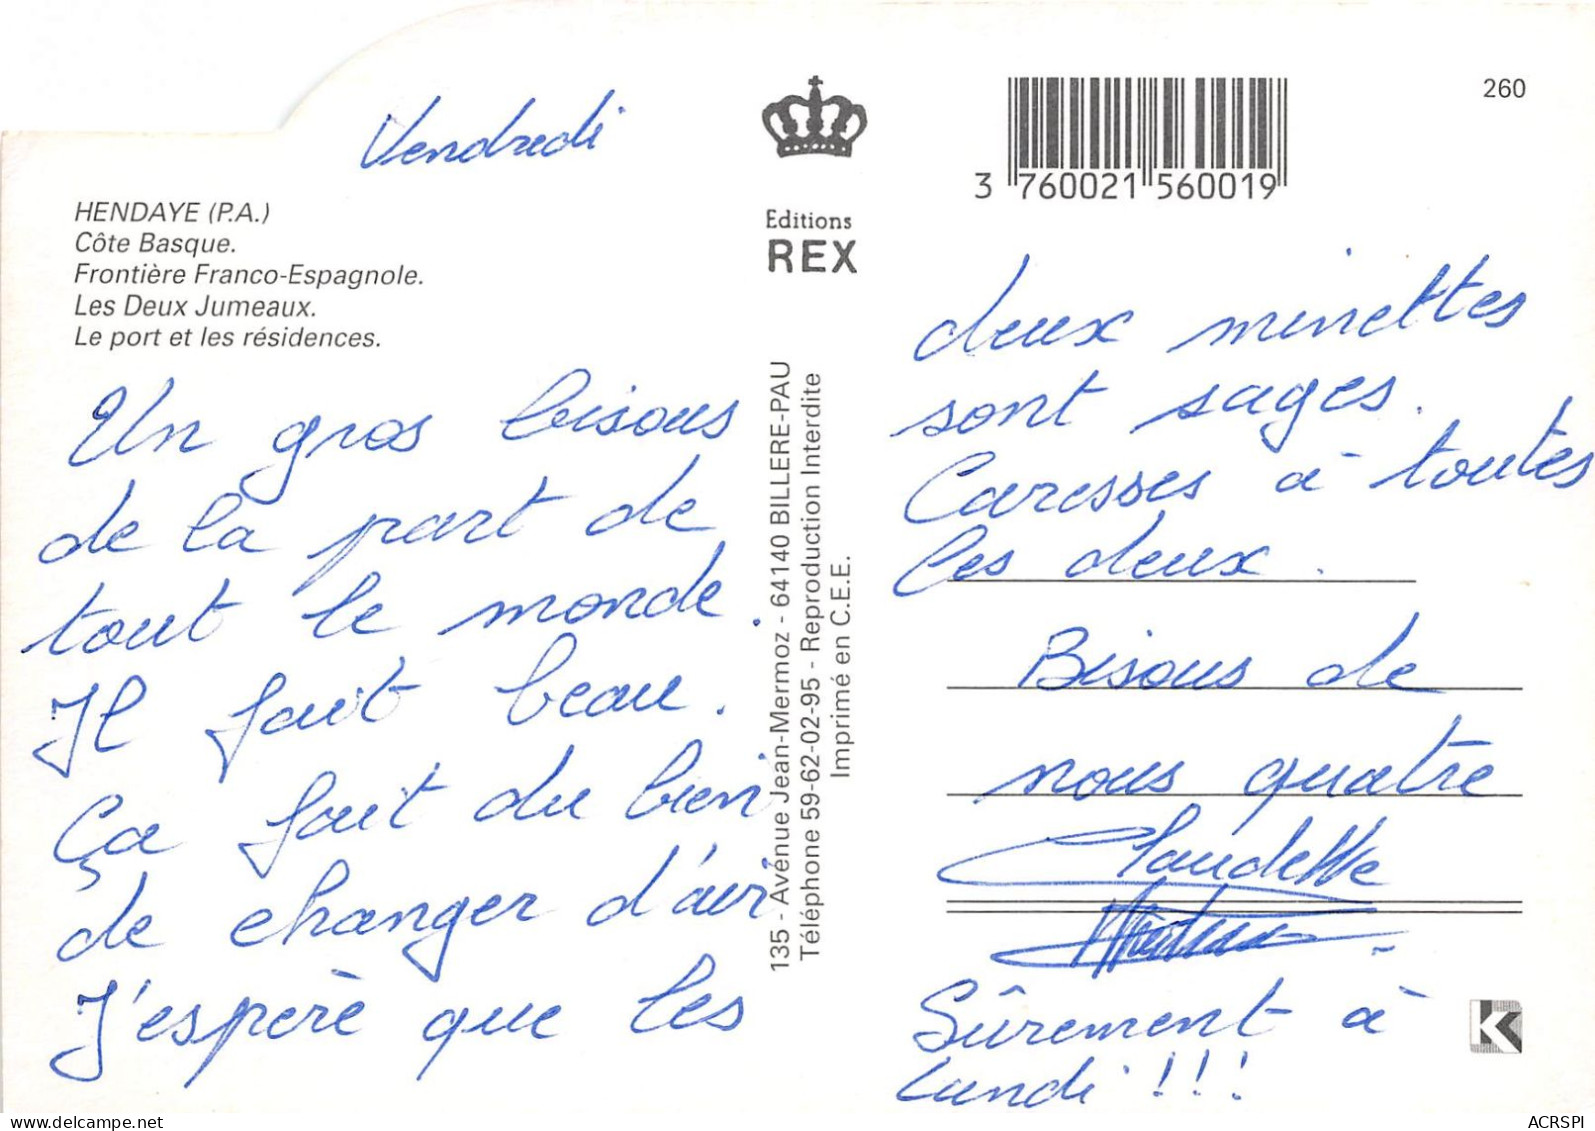 Vendredi
HENDAYE (P.A.)
Côte Basque.
Frontière Franco-Espagnole.
Les Deux Jumeaux.
Le port et les résidences.
Un gros bisous
de la part de
tout le monde.
Il fait beau.
Ça fait du bien
de changer d'air
J'espère que les
Editions
REX
135 - Avenue Jean-Mermoz - 64140 BILLERE-PAU
Téléphone 59-62-02-95 - Reproduction Interdite
Imprimé en C.E.E.
260
3 760021 560019
deux minettes
sont sages.
Caresses à toutes
les deux.
Bisous de
nous quatre
Claudette
Sûrement à
Lundi !!!
K
ACRSPI